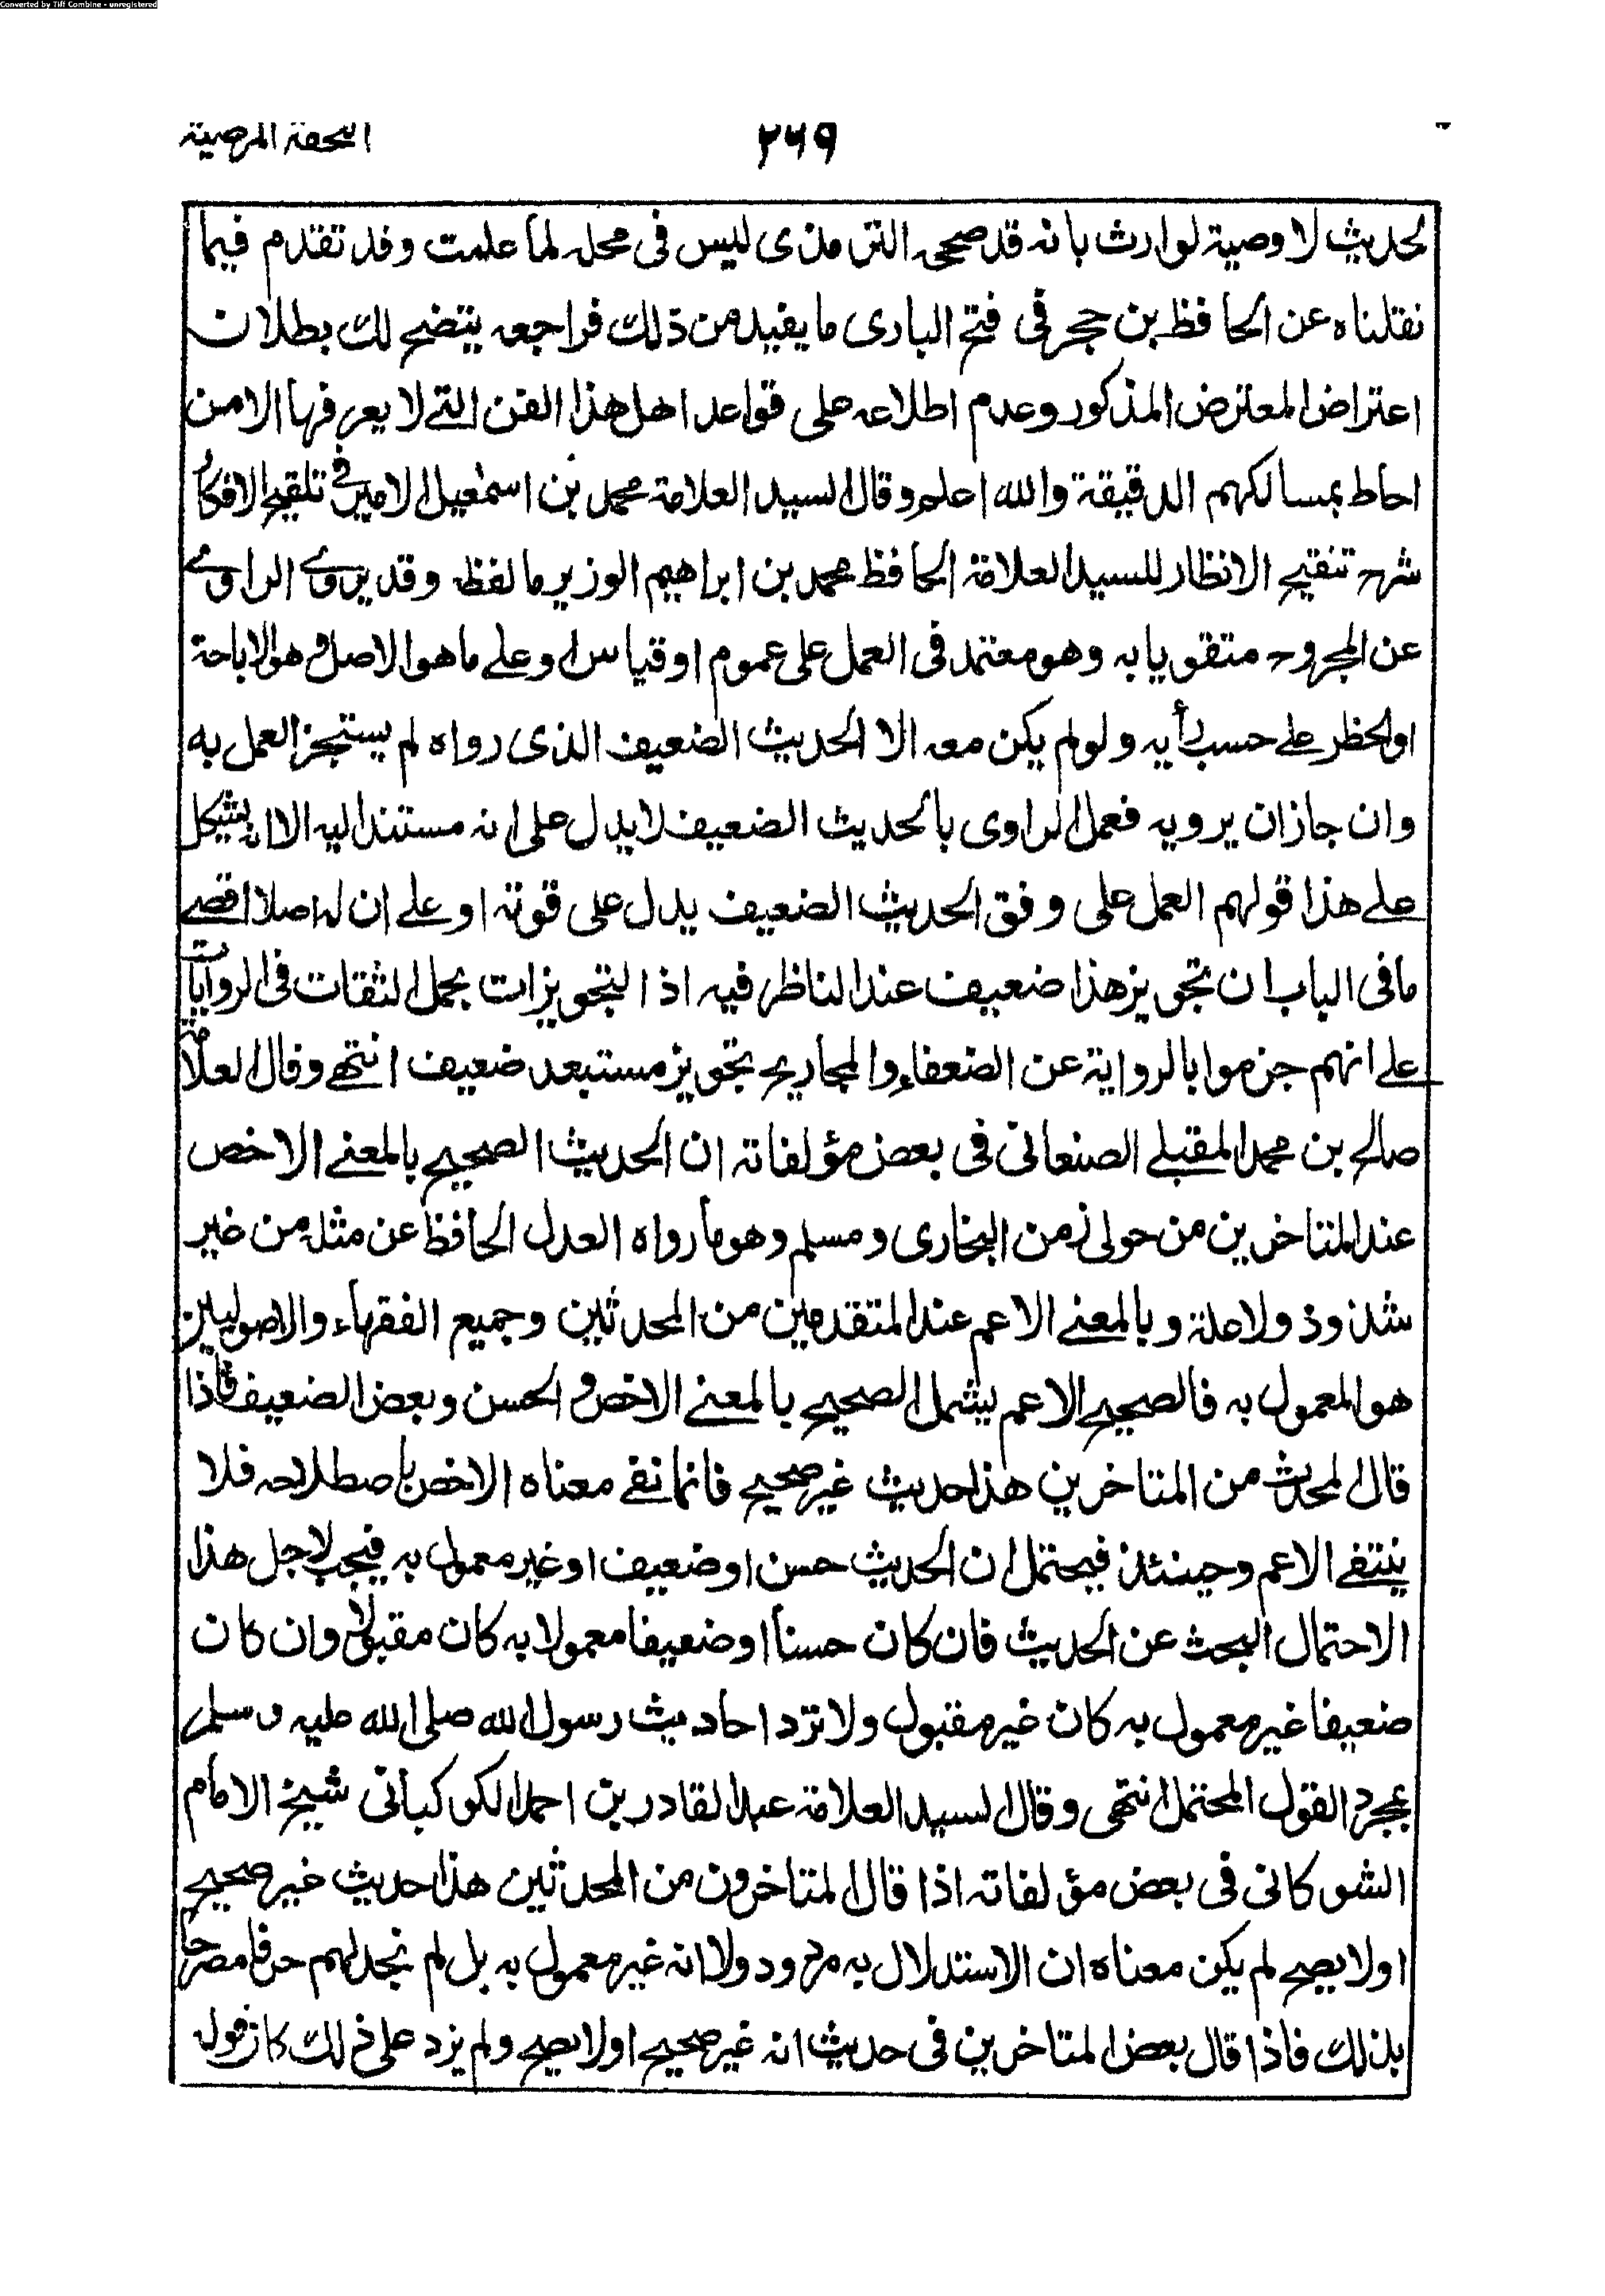 Converted by Tiff Combine - unregistered
التحفة المرضية
٢٦٩
لحديث لا وصية لوارث بانه قد صححه الترمذى ليس فى محله لما علمت وقد تقدم فيما
نقلناه عن الحافظ بن حجر فى فتح البارى ما يفيد من ذلك فراجعه يتضح لك بطلان
اعتراض المعترض المذكور وعدم اطلاعه على قواعد اهل هذا الفن التے لا يعرفها الا من
احاط بمسالكهم الدقيقة والله اعلم وقال السيد العلامة محمد بن اسمٰعيل الامير فے تلقيح الافكار
شرح تنقيح الانظار للسيد العلامة الحافظ محمد بن ابراهيم الوزير ما لفظه وقد يروے الراوے
عن المجروح متقويا به وهو معتمد فى العمل على عموم او قياس او علے ما هو الاصل وهو الاباحة
او الحظر علے حسب رأيه ولو لم يكن معه الا الحديث الضعيف الذى رواه لم يستجز العمل به
وان جاز ان يرويه فعمل الراوى بالحديث الضعيف لا يدل على انه مستند اليه الا انه يشكل
علے هذا قولهم العمل على وفق الحديث الضعيف يدل على قوته او علے ان له اصلا اقصے
ما فى الباب ان تجويز هذا ضعيف عند الناظر فيه اذ التجويزات بحمل الثقات فى الروايات
علے انهم جزموا بالرواية عن الضعفاء والمجاريح تجويز مستبعد ضعيف انتهے وقال العلامة
صالح بن محمد المقبلے الصنعانى فى بعض مؤلفاته ان الحديث الصحيح بالمعنے الاخص
عند المتاخرين من حوالى زمن البخارى ومسلم وهو ما رواه العدل الحافظ عن مثله من غير
شذوذ ولا علة وبالمعنے الاعم عند المتقدمين من المحدثين وجميع الفقهاء والاصوليين
هو المعمول به فالصحيح الاعم يشمل الصحيح بالمعنے الاخص والحسن وبعض الضعيف فاذا
قال المحدث من المتاخرين هذا حديث غير صحيح فانما نفے معناه الاخص باصطلاحه فلا
ينتفے الاعم وحينئذ فيحتمل ان الحديث حسن او ضعيف او غير معمول به فيجب لاجل هذا
الاحتمال البحث عن الحديث فان كان حسنا او ضعيفا معمولا به كان مقبولا وان كان
ضعيفا غير معمول به كان غير مقبول ولا ترد احاديث رسول الله صلى الله عليه وسلم
بمجرد القول المحتمل انتهى وقال السيد العلامة عبد القادر بن احمد الكوكبانى شيخ الامام
الشوكانى فى بعض مؤلفاته اذا قال المتاخرون من المحدثين هذا حديث غير صحيح
او لا يصح لم يكن معناه ان الاستدلال به مردود ولا انه غير معمول به بل لم نجد لهم حرفا مصرحا
بذلك فاذا قال بعض المتاخرين فى حديث انه غير صحيح او لا يصح ولم يزد على ذلك كان قوله